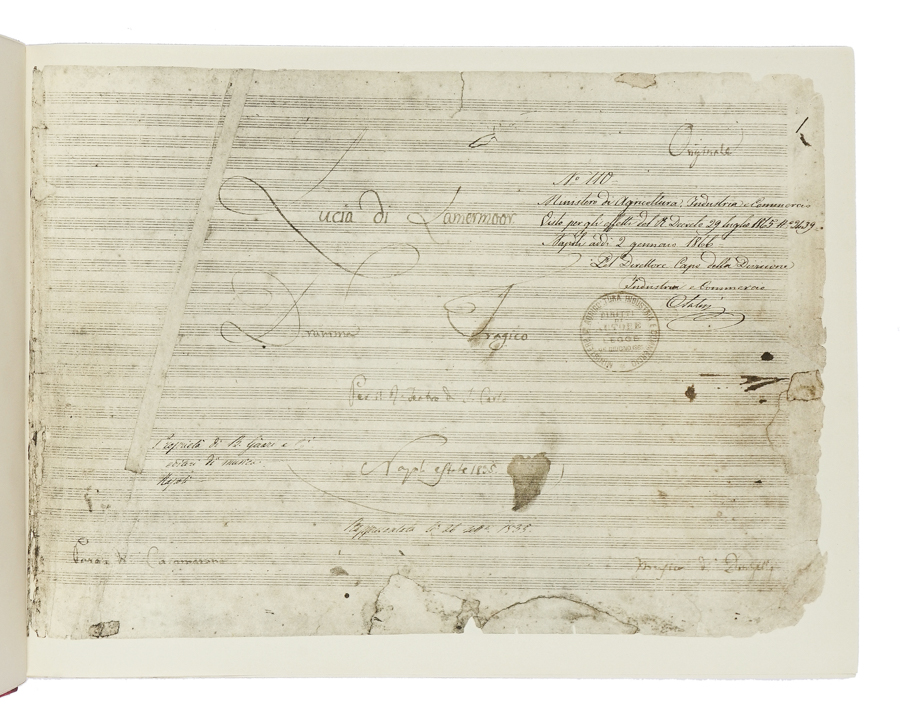 Originale
N.º 110
Ministero di Agricoltura, Industria e Commercio
Visto per gli effetti del R. Decreto 29 luglio 1865 N.º 2439.
Napoli addì 2 gennaio 1866
Il Direttore Capo della Divisione
Industria e Commercio
Lucia di Lamermoor
Dramma Tragico
DIRITTI
AUTORE
LEGGE
Per il R. Teatro di S. Carlo
Proprietà di B. Girard e C.i
editori di musica
Napoli
Napoli estate 1835
Rappresentata li 26 1835
Poesia di Cammerano
Musica di Donizetti